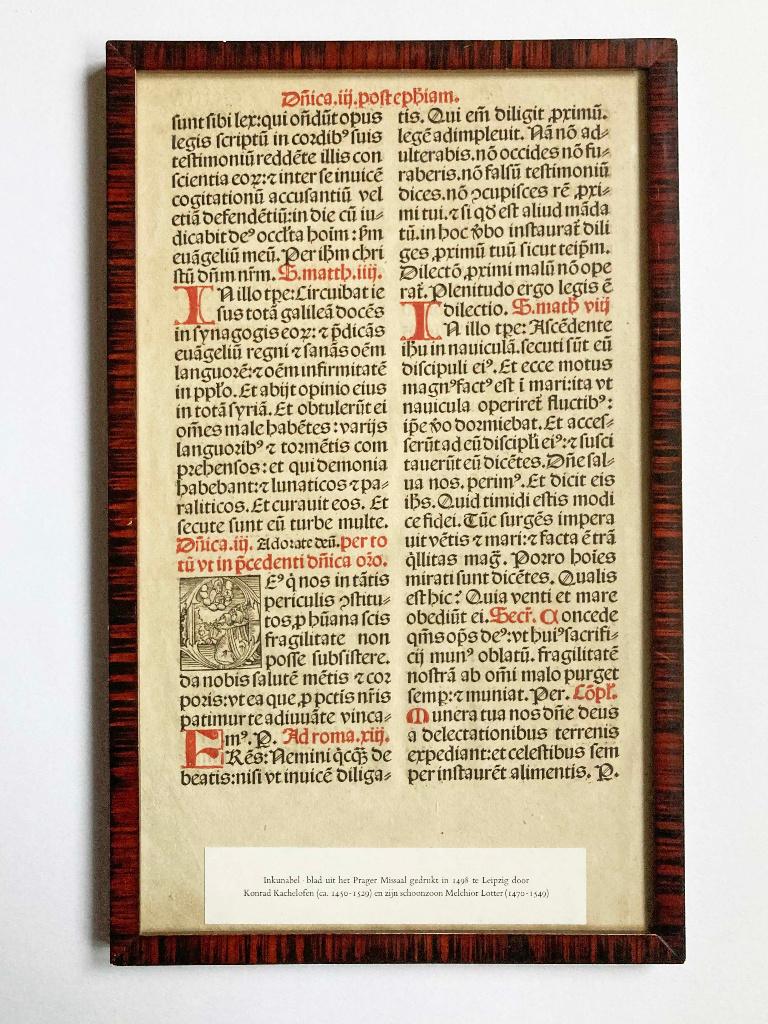 Dñica.iij.post ephiam.
sunt sibi lex:qui oñdũt opus
legis scriptũ in cordibꝰ suis
testimoniũ reddẽte illis con
scientia eoꝝ:⁊ inter se inuicẽ
cogitationũ accusantiũ vel
etiã defendẽtiũ:in die cũ iu⸗
dicabit deꝰ occl̃ta hoĩm : ẜm
euãgeliũ meũ. Per ih̃m chri
stũ dñm nr̃m. S. matth. iiij.
IN illo tp̃e:Circuibat ie
sus totã galileã docẽs
in synagogis eoꝝ: ⁊ p̃dicãs
euãgeliũ regni ⁊ sanãs oẽm
languorẽ:⁊ oẽm infirmitatẽ
in pp̃lo. Et abijt opinio eius
in totã syriã. Et obtulerũt ei
om̃es male habẽtes: varijs
languoribꝰ ⁊ tormẽtis com
prehensos: et qui demonia
habebant:⁊ lunaticos ⁊ pa⸗
raliticos. Et curauit eos. Et
secute sunt eũ turbe multe.
Dñica.iij. Adorate deũ. per to
tũ vt in p̃cedenti dñica or̃o.
DEꝰ q̃ nos in tãtis
periculis ↄstitu⸗
tos,ꝓ hũana scis
fragilitate non
posse subsistere.
da nobis salutẽ mẽtis ⁊ cor
poris: vt ea que ,ꝓ pctĩs nr̃is
patimur te adiuuãte vinca⸗
mꝰ. P. Ad roma. xiij.
FRẽs: Nemini q̃cq̃ꝫ de
beatis: nisi vt inuicẽ diliga⸗
tis. Qui em̃ diligit ꝓximũ.
legẽ adimpleuit. Nã nõ ad⸗
ulterabis. nõ occides nõ fu⸗
raberis. nõ falsũ testimoniũ
dices. nõ ↄcupisces rẽ ꝓxi⸗
mi tui. ⁊ si qđ est aliud mãda
tũ. in hoc ṽbo instaurat̃ dili
ges ꝓximũ tuũ sicut teip̃m.
Dilectõ ꝓximi malũ nõ ope
rat̃. Plenitudo ergo legis ẽ
dilectio. S. math viij
IN illo tp̃e: Ascẽdente
ih̃u in nauiculã. secuti sũt eũ
discipuli eiꝰ. Et ecce motus
magnꝰ factꝰ est ĩ mari:ita vt
nauicula operiret̃ fluctibꝰ:
ip̃e ṽo dormiebat. Et acces⸗
serũt ad eũ discipl̃i eiꝰ:⁊ susci
tauerũt eũ dicẽtes. Dñe sal⸗
ua nos. perimꝰ. Et dicit eis
ih̃s. Quid timidi estis modi
ce fidei. Tũc surgẽs impera
uit vẽtis ⁊ mari: ⁊ facta ẽ trã
q̃llitas mag̃. Porro hoĩes
mirati sunt dicẽtes. Qualis
est hic? Quia venti et mare
obediũt ei. Secr̃. Concede
q̃ms op̃s deꝰ:vt huiꝰ sacrifi⸗
cij munꝰ oblatũ. fragilitatẽ
nostrã ab om̃i malo purget
semp̱: ⁊ muniat. Per. Cõpl̃.
Munera tua nos dñe deus
a delectationibus terrenis
expediant: et celestibus sem
per instaurẽt alimentis. P.
Inkunabel - blad uit het Prager Missaal gedrukt in 1498 te Leipzig door
Konrad Kachelofen (ca. 1450-1529) en zijn schoonzoon Melchior Lotter (1470-1549)